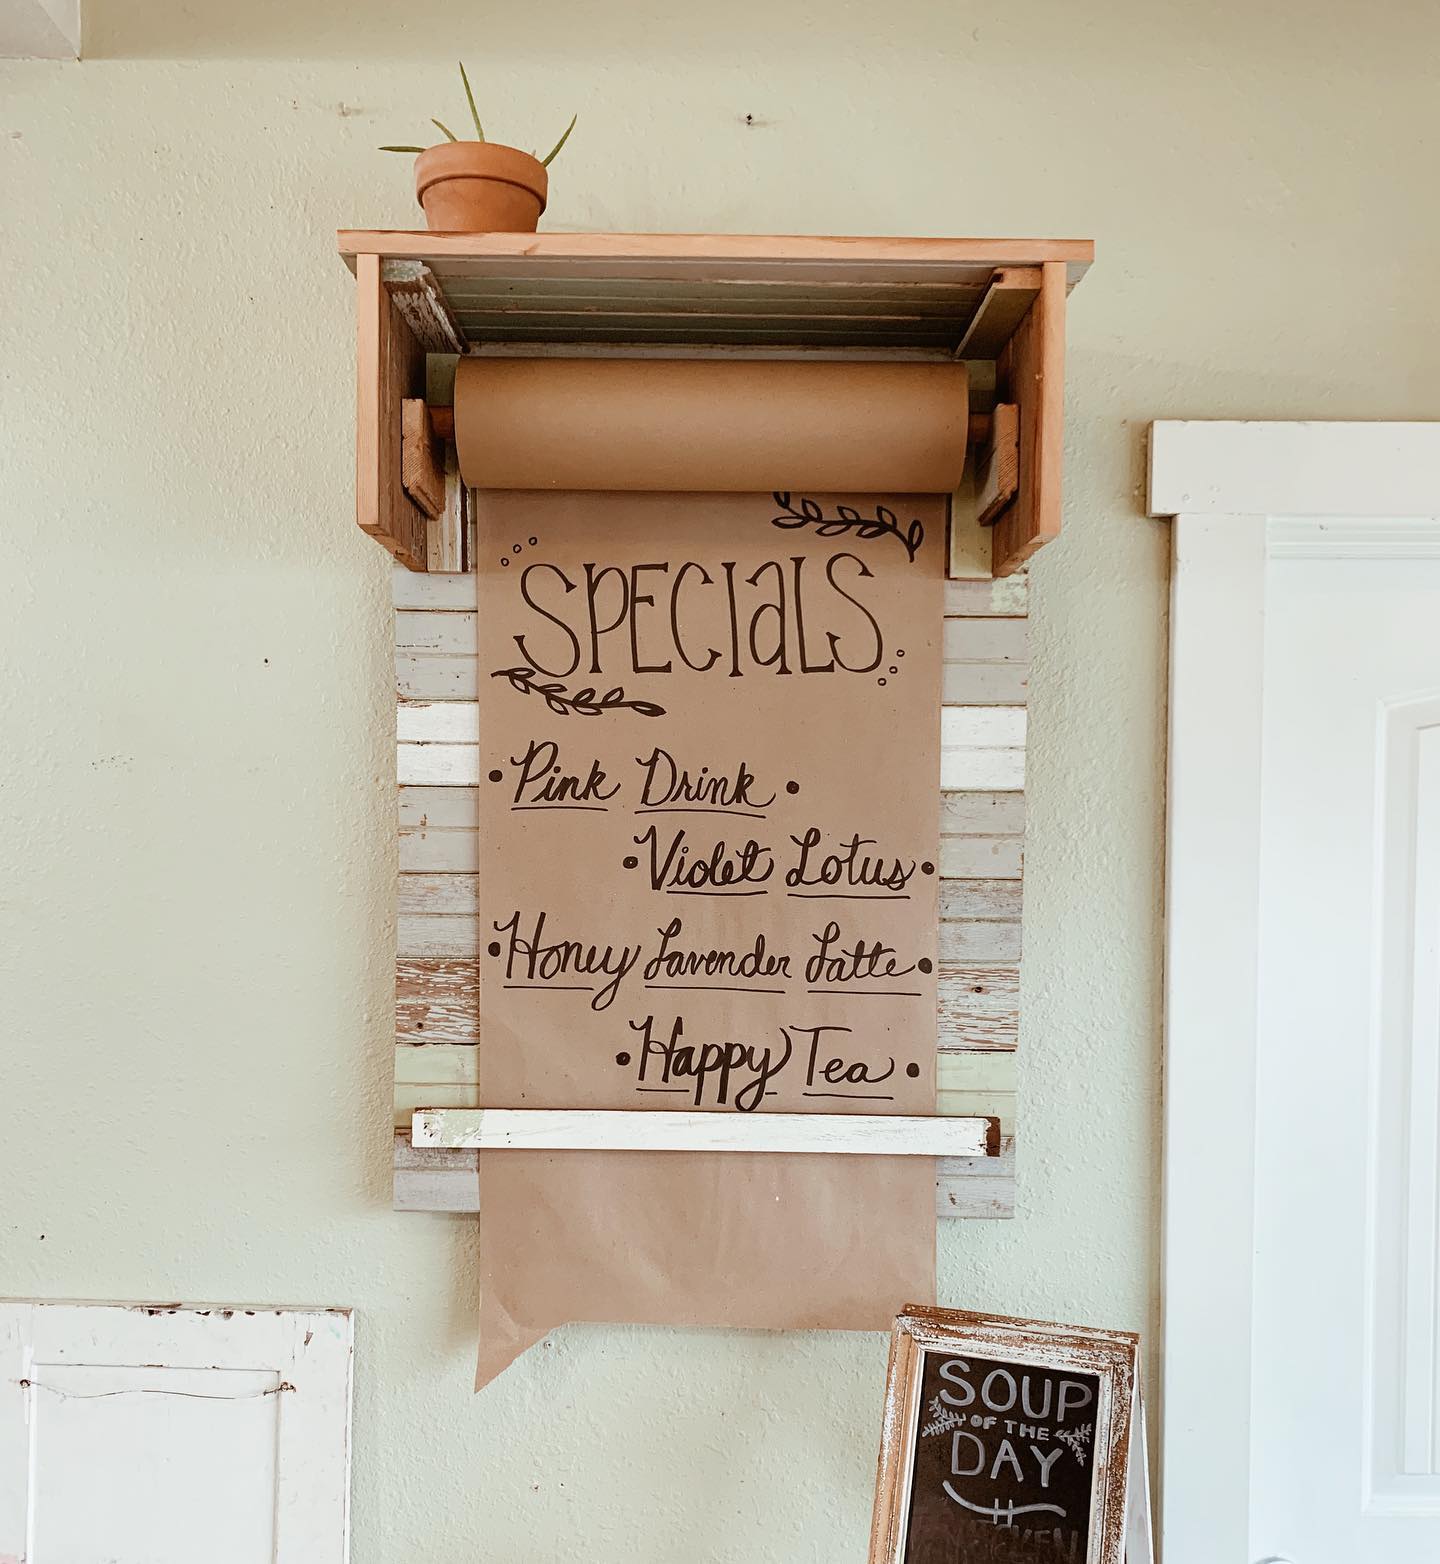 SPECIaLS
• Pink Drink •
• Violet Lotus •
• Honey Lavender Latte •
• Happy Tea •
SOUP
OF THE
DAY